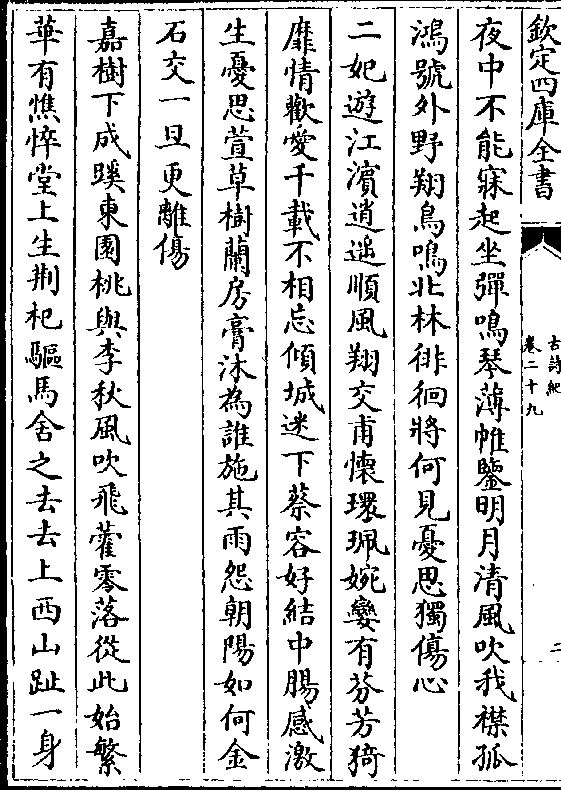 欽定四庫全書
古詩紀
卷二十九
二
夜中不能寐起坐彈鳴琴薄帷鑒明月清風吹我襟孤
鴻號外野翔鳥鳴北林徘徊將何見憂思獨傷心
二妃遊江濱逍遙順風翔交甫懷環珮婉孌有芬芳猗
靡情歡愛千載不相忘傾城迷下蔡容好結中腸感激
生憂思萱草樹蘭房膏沐為誰施其雨怨朝陽如何金
石交一旦更離傷
嘉樹下成蹊東園桃與李秋風吹飛藿零落從此始繁
華有憔悴堂上生荆杞驅馬舍之去去上西山趾一身